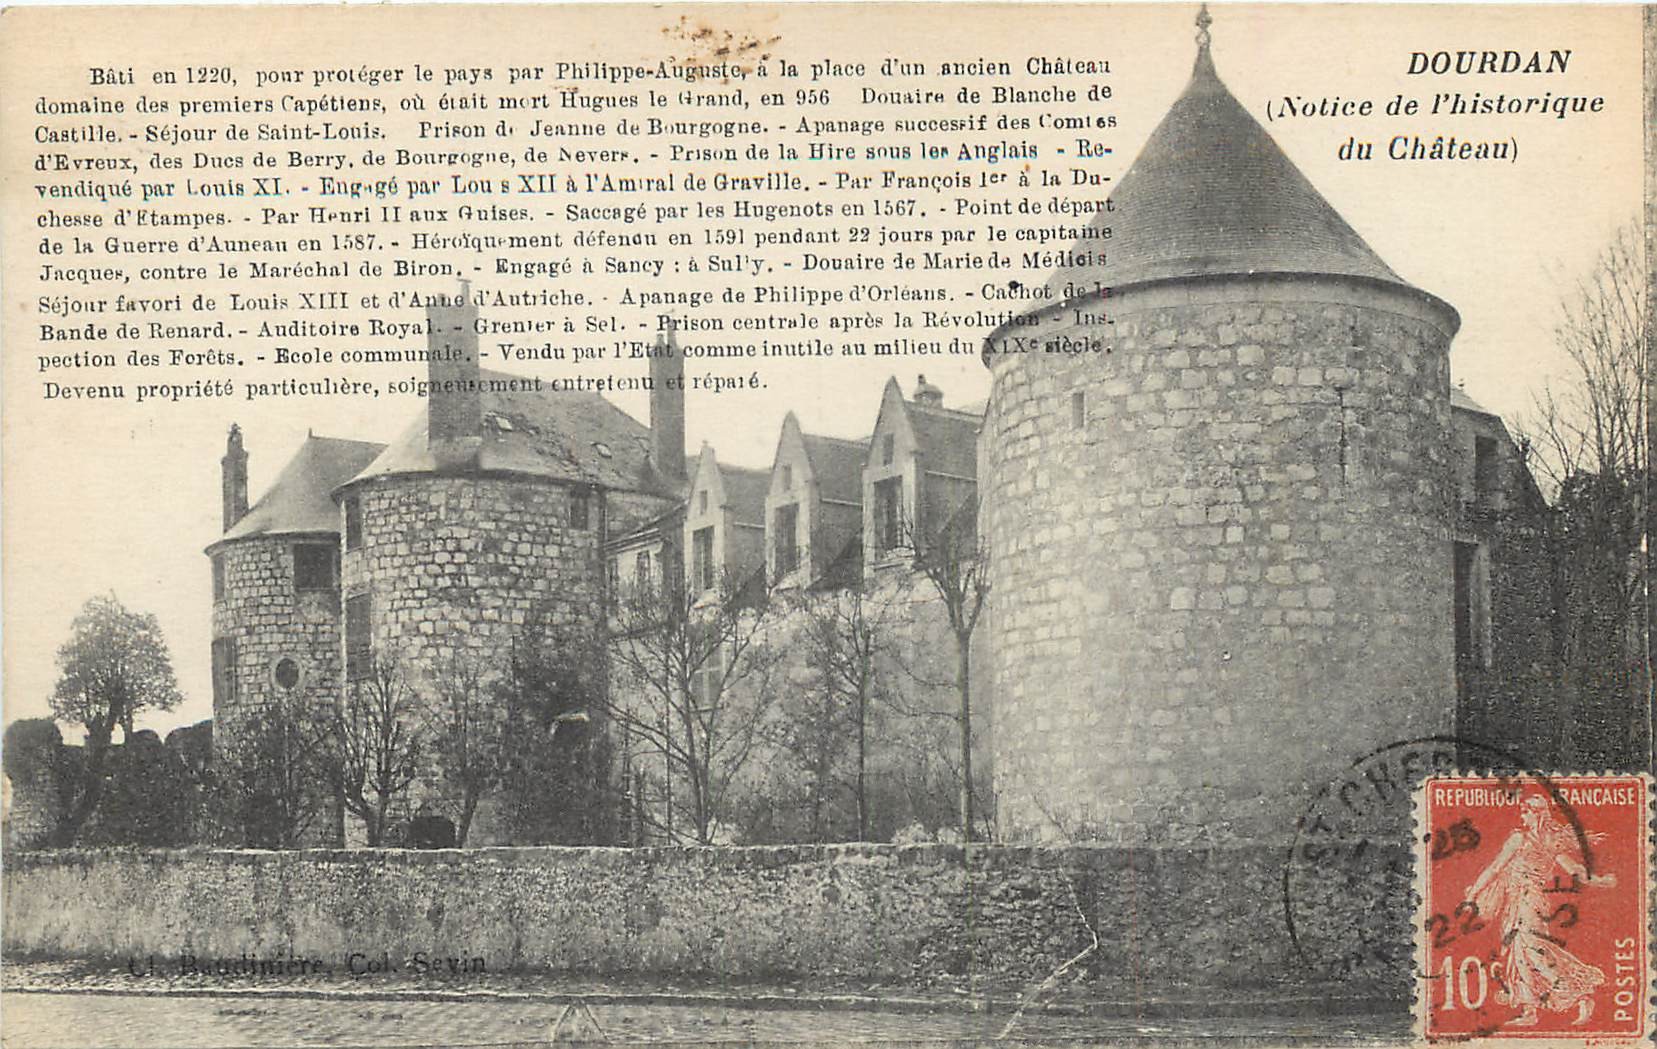 DOURDAN
(Notice de l'historique
du Château)
Bâti en 1220, pour protéger le pays par Philippe-Auguste, à la place d'un ancien Château
domaine des premiers Capétiens, où était mort Hugues le Grand, en 956 Douaire de Blanche de
Castille. - Séjour de Saint-Louis. Prison de Jeanne de Bourgogne. - Apanage successif des Comtes
d'Evreux, des Ducs de Berry, de Bourgogne, de Nevers. - Prison de la Hire sous les Anglais - Re-
vendiqué par Louis XI. - Engagé par Louis XII à l'Amiral de Graville. - Par François 1er à la Du-
chesse d'Etampes. - Par Henri II aux Guises. - Saccagé par les Hugenots en 1567. - Point de départ
de la Guerre d'Auneau en 1587. - Héroïquement défendu en 1591 pendant 22 jours par le capitaine
Jacques, contre le Maréchal de Biron. - Engagé à Sancy : à Sully. - Douaire de Marie de Médicis
Séjour favori de Louis XIII et d'Anne d'Autriche. - Apanage de Philippe d'Orléans. - Cachot de la
Bande de Renard. - Auditoire Royal. - Grenier à Sel. - Prison centrale après la Révolution - Ins-
pection des Forêts. - Ecole communale. - Vendu par l'Etat comme inutile au milieu du XIXe siècle.
Devenu propriété particulière, soigneusement entretenu et réparé.
REPUBLIQUE FRANÇAISE
10c
POSTES
22
OISE
Cl. Baudinière, Col. Sevin